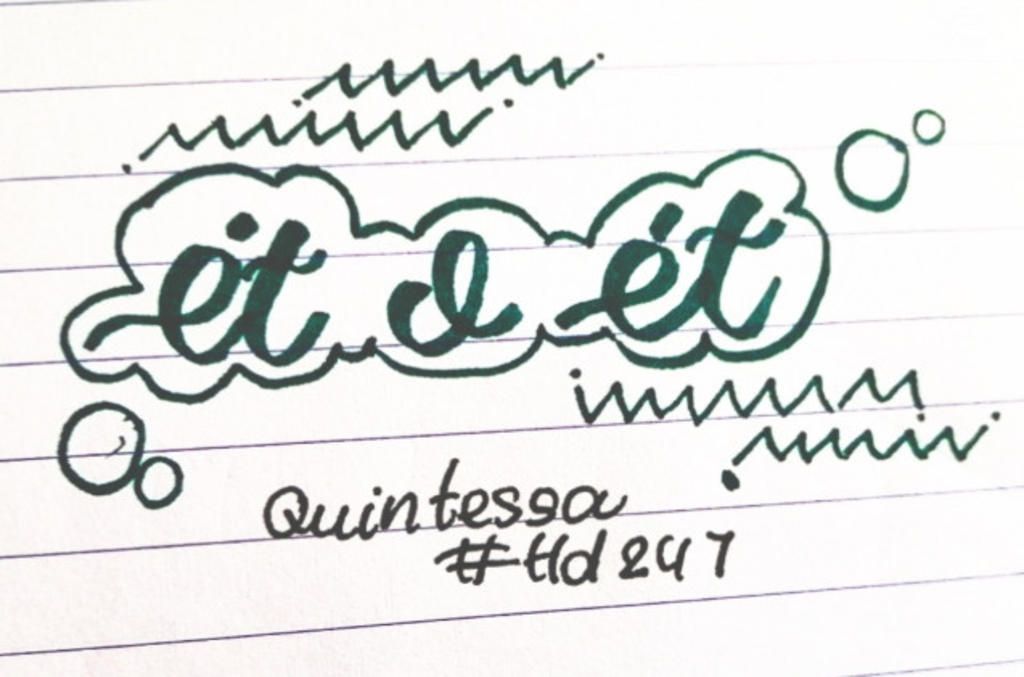 ét d ét
Quintessa
#Hd247